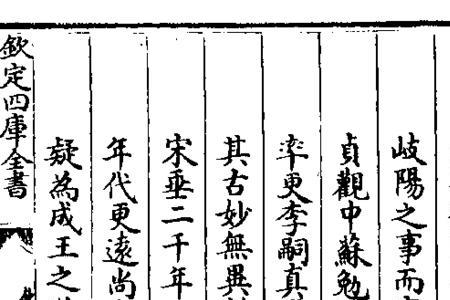 岐陽之事而
貞觀中蘇勉
率更李嗣真
其古妙無異
宋垂二千年
年代更遠尚
疑為成王之
欽定四庫全書